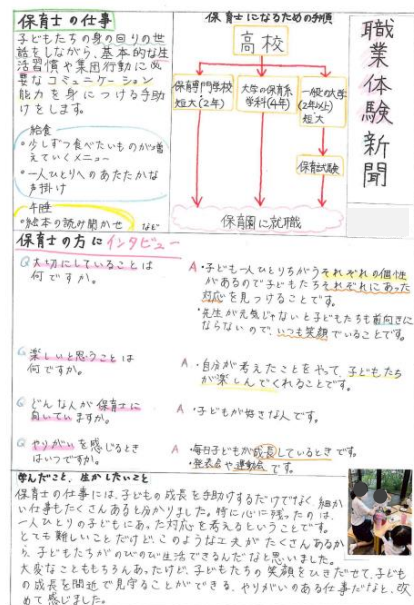 職業体験新聞
保育士の仕事
子どもたちの身の回りの世
話をしながら、基本的な生
活習慣や集団行動に必
要なコミュニケーション
能力を身につける手助
けをします。
給食
・少しずつ食べたいものが増
えていくメニュー
・一人ひとりへのあたたかな
声掛け
午睡
・絵本の読み聞かせ など
保育士になるための手順
高校
保育専門学校
短大(2年)
大学の保育系
学科(4年)
一般の大学
(2年以上)
短大
保育試験
保育園に就職
保育士の方にインタビュー
Q 大切にしていることは
何ですか。
A ・子ども一人ひとりちがうそれぞれの個性
があるので子どもたちそれぞれにあった
対応を見つけることです。
・先生が元気じゃないと子どもたちも前向きに
ならないので、いつも笑顔でいることです。
Q 楽しいと思うことは
何ですか。
A ・自分が考えたことをやって、子どもたち
が楽しんでくれることです。
Q どんな人が保育士に
向いていますか。
A ・子どもが好きな人です。
Q やりがいを感じるとき
はいつですか。
A ・毎日子どもが成長しているときです。
・発表会や運動会です。
学んだこと、生かしたいこと
保育士の仕事には、子どもの成長を手助けするだけでなく、細か
い仕事もたくさんあると分かりました。特に心に残ったのは、
一人ひとりの子どもにあった対応を考えるということです。
とても難しいことだけど、このような工夫がたくさんあるか
ら、子どもたちがのびのび生活できるんだなと思いました。
大変なこともちろんあったけど、子どもたちの笑顔をひきだせて、子ども
の成長を間近で見守ることができる、やりがいのある仕事だなと、改
めて感じました。